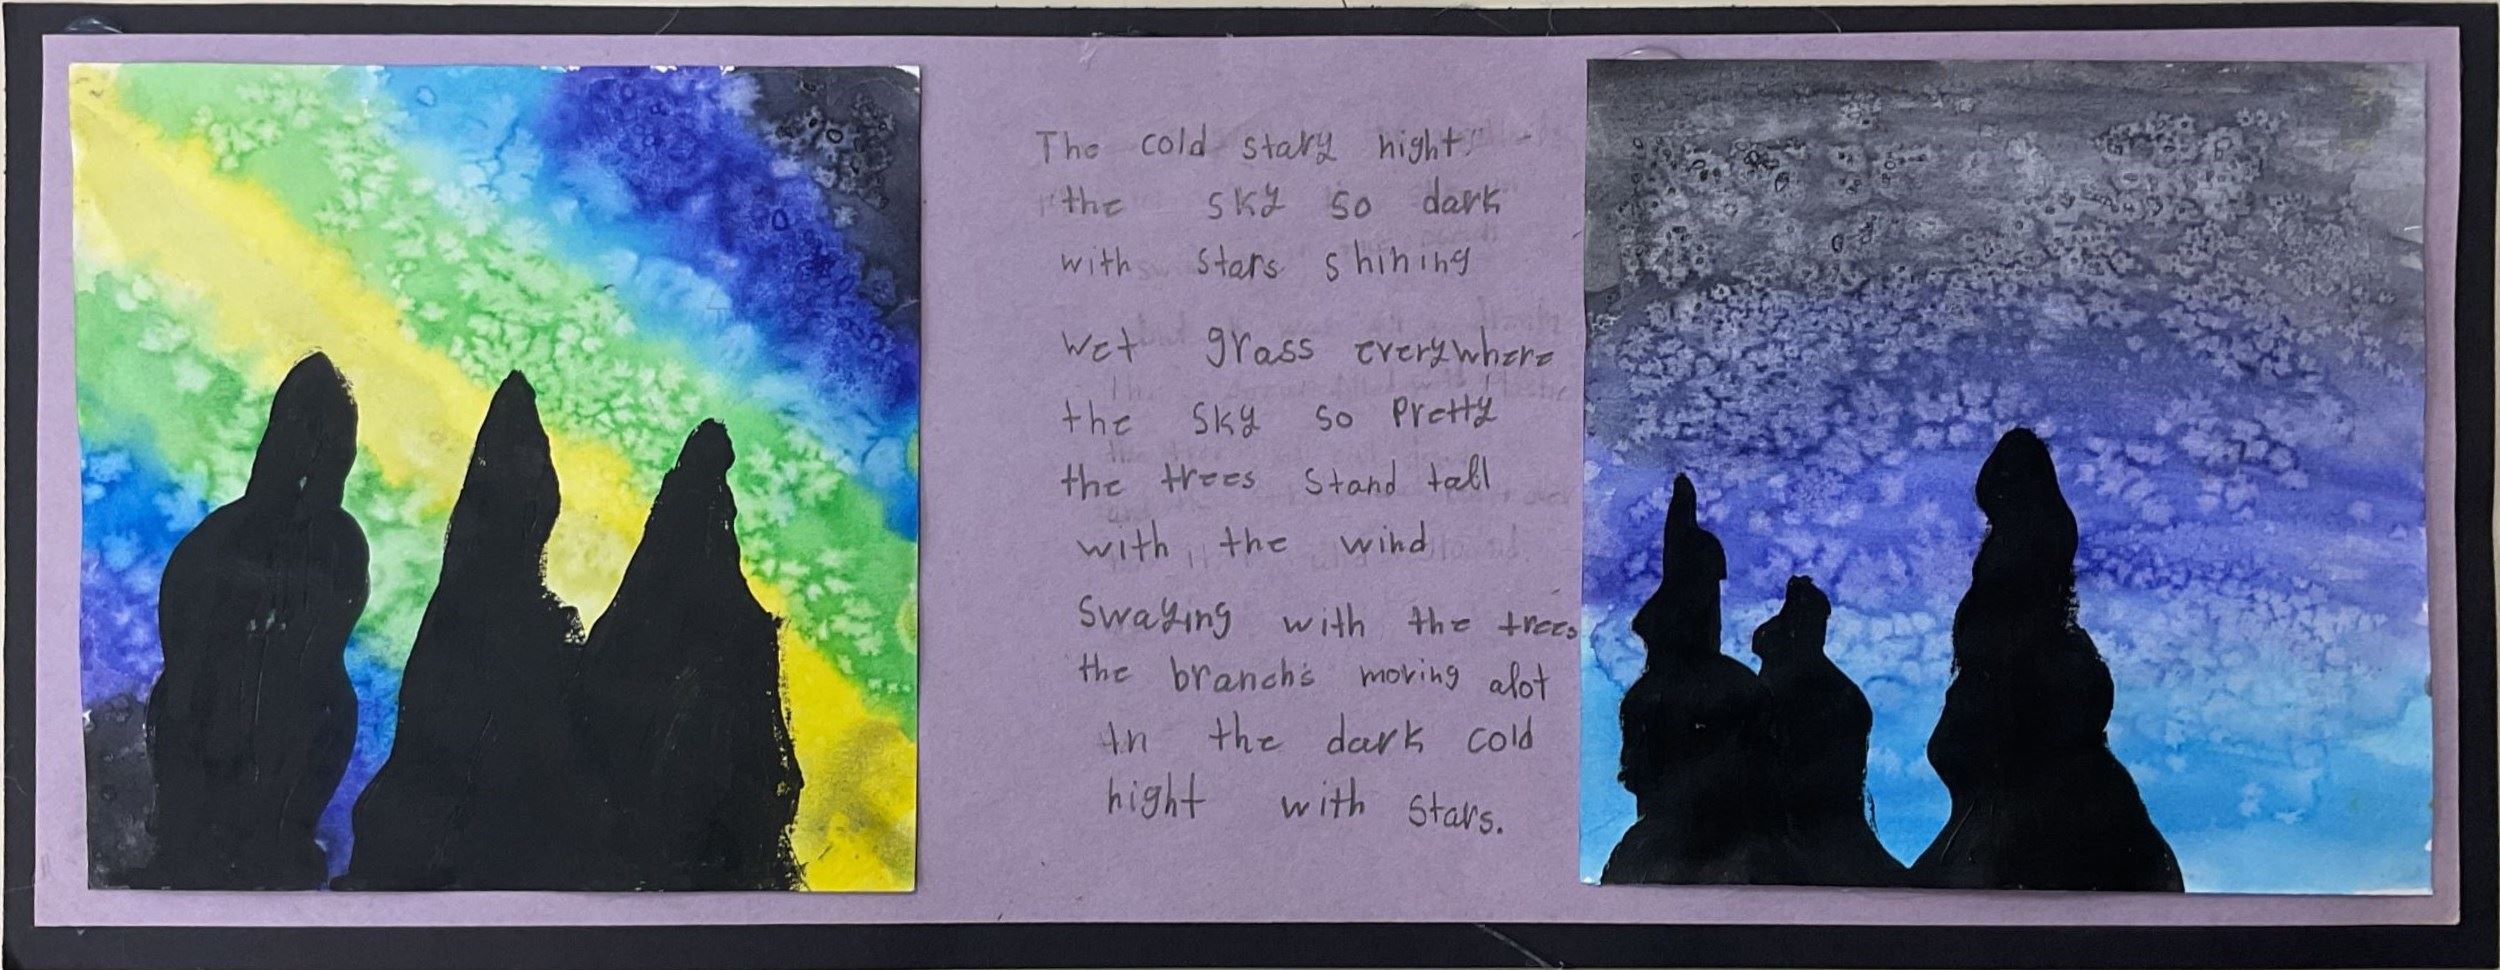 The cold stary night
the sky so dark
with stars shining
Wet grass everywhere
the sky so Pretty
the trees stand tall
with the wind
Swaying with the trees
the branchs moving alot
In the dark cold
night with stars.